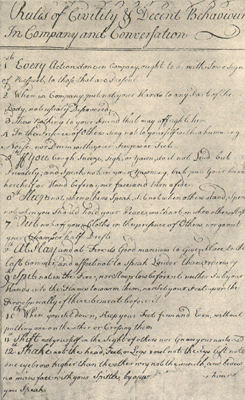 Rules of Civility & Decent Behaviour
In Company and Conversation
1 Every Action done in Company, ought to be with Some Sign
of Respect, to those that are Present.
2 When in Company, put not your Hands to any Part of the
Body, not usualy Discovered.
3 Shew Nothing to your Friend that may affright him.
4 In the Presence of Others Sing not to yourself with a humming
Noise, nor Drum with your Fingers or Feet.
5 If You Cough, Sneeze, Sigh, or Yawn, do it not Loud but
Privately; and Speak not in your Yawning, but put Your hand
Hands before
6 Sleep not when others Speak, Sit not when others stand, Speak
not when you should hold your Peace, walk not when others Stop
7 Put not off your Cloths in the presence of Others, nor go out
your Chamber half Drest
8 At Play and at Fire its Good manners to Give Place to the
last Commer, and affect not to Speak Louder than ordinary
9 Spit not in the Fire, nor Stoop low before it neither Put your
Hands into the Flames to warm them, nor Set your Feet upon the
Fire especially if there be meat before it
10 When you Sit down, Keep your Feet firm and Even, without
putting one on the other or Crossing them
11 Shift not yourself in the Sight of others nor Gnaw your nails
12 Shake not the head, Feet, or Legs rowl not the Eys lift not
one eyebrow higher than the other wry not the mouth, and bedew
no mans face with your Spittle, by
you Speak